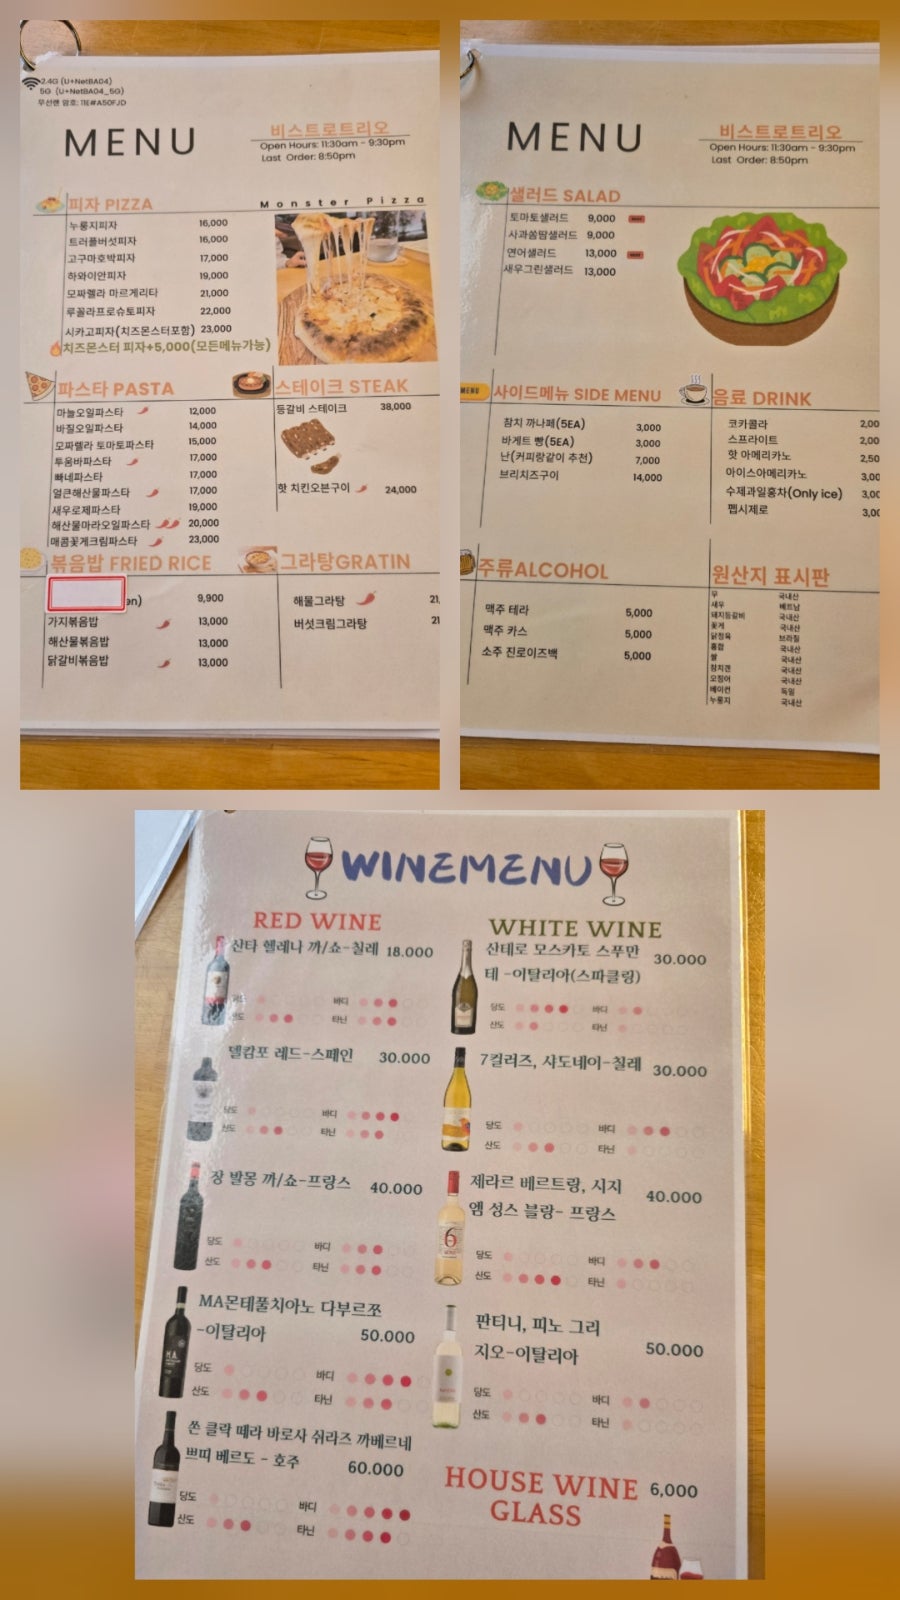 2.4G (U+NetBA04)
5G (U+NetBA04_5G)
무선랜 암호: 11E#A50FJD
MENU
비스트로트리오
Open Hours: 11:30am - 9:30pm
Last Order: 8:50pm
피자 PIZZA
Monster Pizza
누룽지피자 16,000
트러플버섯피자 16,000
고구마호박피자 17,000
하와이안피자 19,000
모짜렐라 마르게리타 21,000
루꼴라프로슈토피자 22,000
시카고피자(치즈몬스터포함) 23,000
치즈몬스터 피자+5,000(모든메뉴가능)
파스타 PASTA
마늘오일파스타 12,000
바질오일파스타 14,000
모짜렐라 토마토파스타 15,000
투움바파스타 17,000
빠네파스타 17,000
얼큰해산물파스타 17,000
새우로제파스타 19,000
해산물마라오일파스타 20,000
매콤꽃게크림파스타 23,000
스테이크 STEAK
등갈비 스테이크 38,000
핫 치킨오븐구이 24,000
볶음밥 FRIED RICE
en) 9,900
가지볶음밥 13,000
해산물볶음밥 13,000
닭갈비볶음밥 13,000
그라탕GRATIN
해물그라탕 21,
버섯크림그라탕 21
MENU
비스트로트리오
Open Hours: 11:30am - 9:30pm
Last Order: 8:50pm
샐러드 SALAD
토마토샐러드 9,000
사과쏨땀샐러드 9,000
연어샐러드 13,000
새우그린샐러드 13,000
MENU
사이드메뉴 SIDE MENU
참치 까나페(5EA) 3,000
바게트 빵(5EA) 3,000
난(커피랑같이 추천) 7,000
브리치즈구이 14,000
음료 DRINK
코카콜라 2,00
스프라이트 2,00
핫 아메리카노 2,50
아이스아메리카노 3,00
수제과일홍차(Only ice) 3,00
펩시제로 3,00
주류ALCOHOL
맥주 테라 5,000
맥주 카스 5,000
소주 진로이즈백 5,000
원산지 표시판
무 국내산
새우 베트남
돼지등갈비 국내산
꽃게 국내산
닭정육 브라질
홍합 국내산
쌀 국내산
참치캔 국내산
오징어 국내산
베이컨 독일
누룽지 국내산
WINEMENU
RED WINE
산타 헬레나 까/쇼-칠레 18.000
당도 바디
산도 타닌
델캄포 레드-스페인 30.000
당도 바디
산도 타닌
장 발몽 까/쇼-프랑스 40.000
당도 바디
산도 타닌
MA몬테풀치아노 다부르쪼
-이탈리아 50.000
당도 바디
산도 타닌
쏜 클락 떼라 바로사 쉬라즈 까베르네
쁘띠 베르도 - 호주 60.000
당도 바디
산도 타닌
WHITE WINE
산테로 모스카토 스푸만
테 -이탈리아(스파클링) 30.000
당도 바디
산도 타닌
7컬러즈, 샤도네이-칠레 30.000
당도 바디
산도 타닌
제라르 베르트랑, 시지
엠 성스 블랑- 프랑스 40.000
당도 바디
산도 타닌
판티니, 피노 그리
지오-이탈리아 50.000
당도 바디
산도 타닌
HOUSE WINE
GLASS 6,000